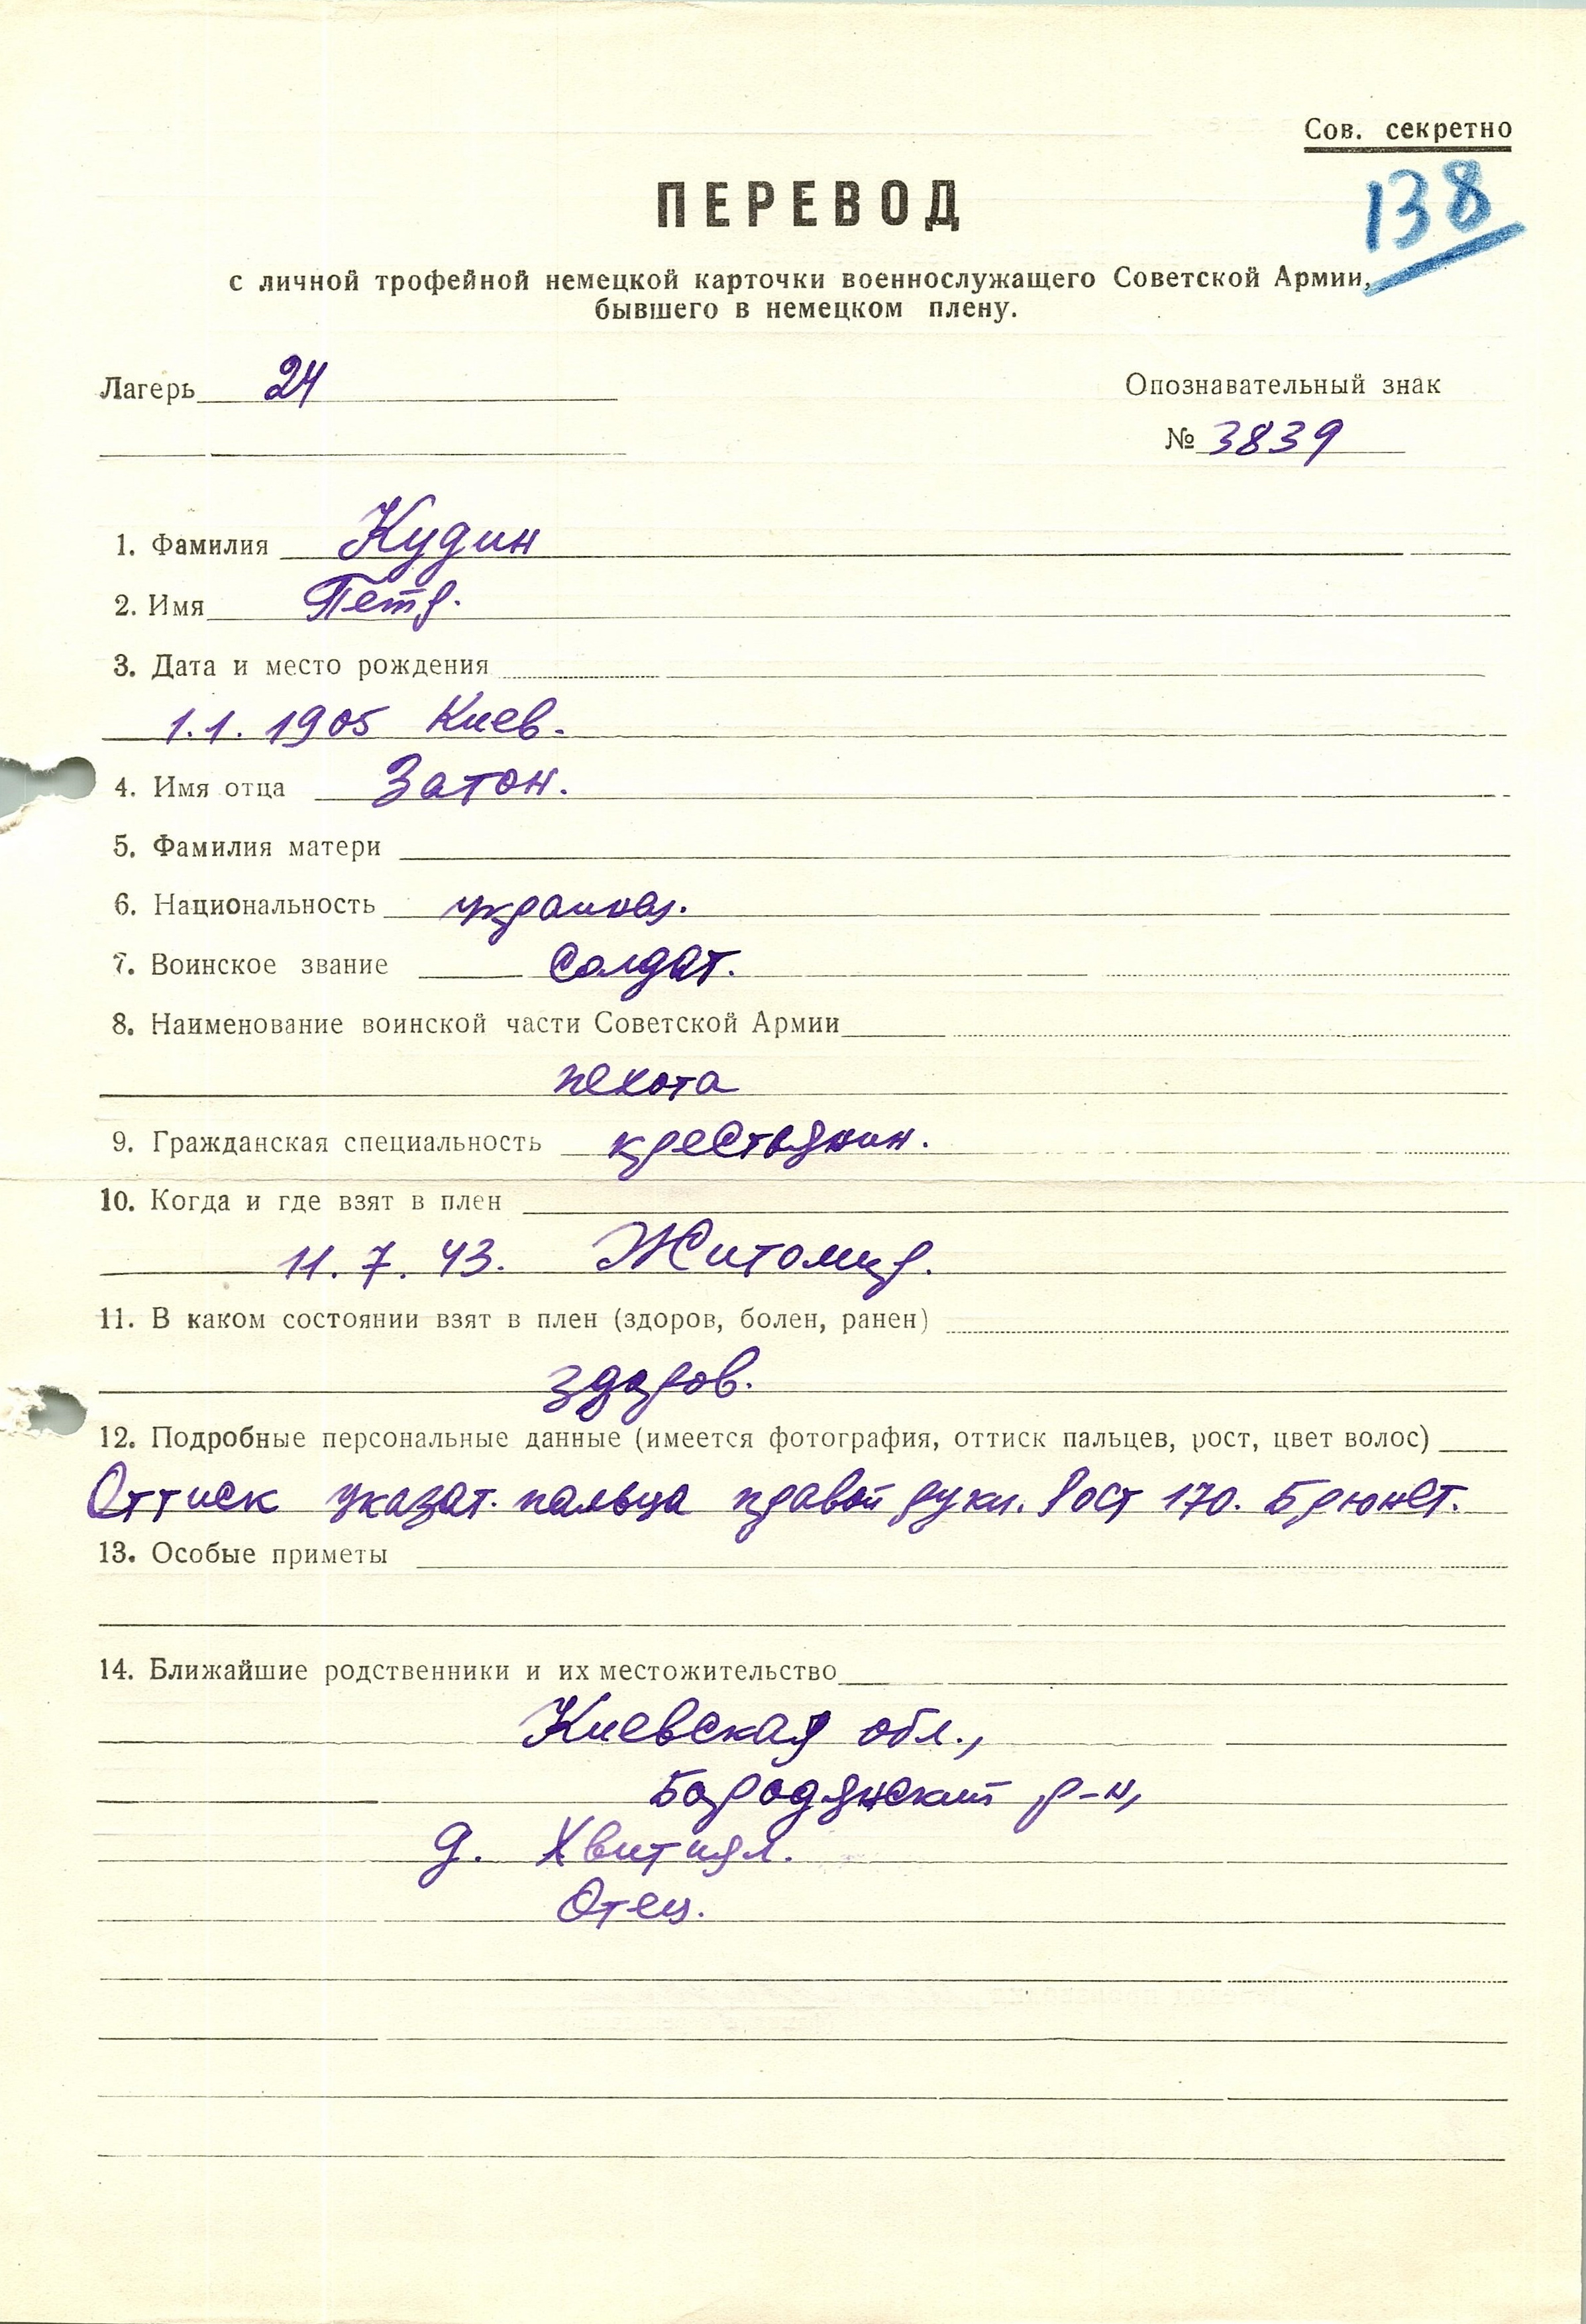 Сов. секретно
138
ПЕРЕВОД
с личной трофейной немецкой карточки военнослужащего Советской Армии,
бывшего в немецком плену.
Лагерь 24
Опознавательный знак
№ 3839
1. Фамилия Кудин
2. Имя Петр.
3. Дата и место рождения
1.1.1905 Киев.
4. Имя отца Затон.
5. Фамилия матери
6. Национальность украинец.
7. Воинское звание солдат.
8. Наименование воинской части Советской Армии
пехота
9. Гражданская специальность крестьянин.
10. Когда и где взят в плен
11.7.43. Житомир.
11. В каком состоянии взят в плен (здоров, болен, ранен)
здоров.
12. Подробные персональные данные (имеется фотография, оттиск пальцев, рост, цвет волос)
Оттиск указат. пальца правой руки. Рост 170. Брюнет.
13. Особые приметы
14. Ближайшие родственники и их местожительство
Киевская обл.,
Бородянский р-н,
д.
Отец.